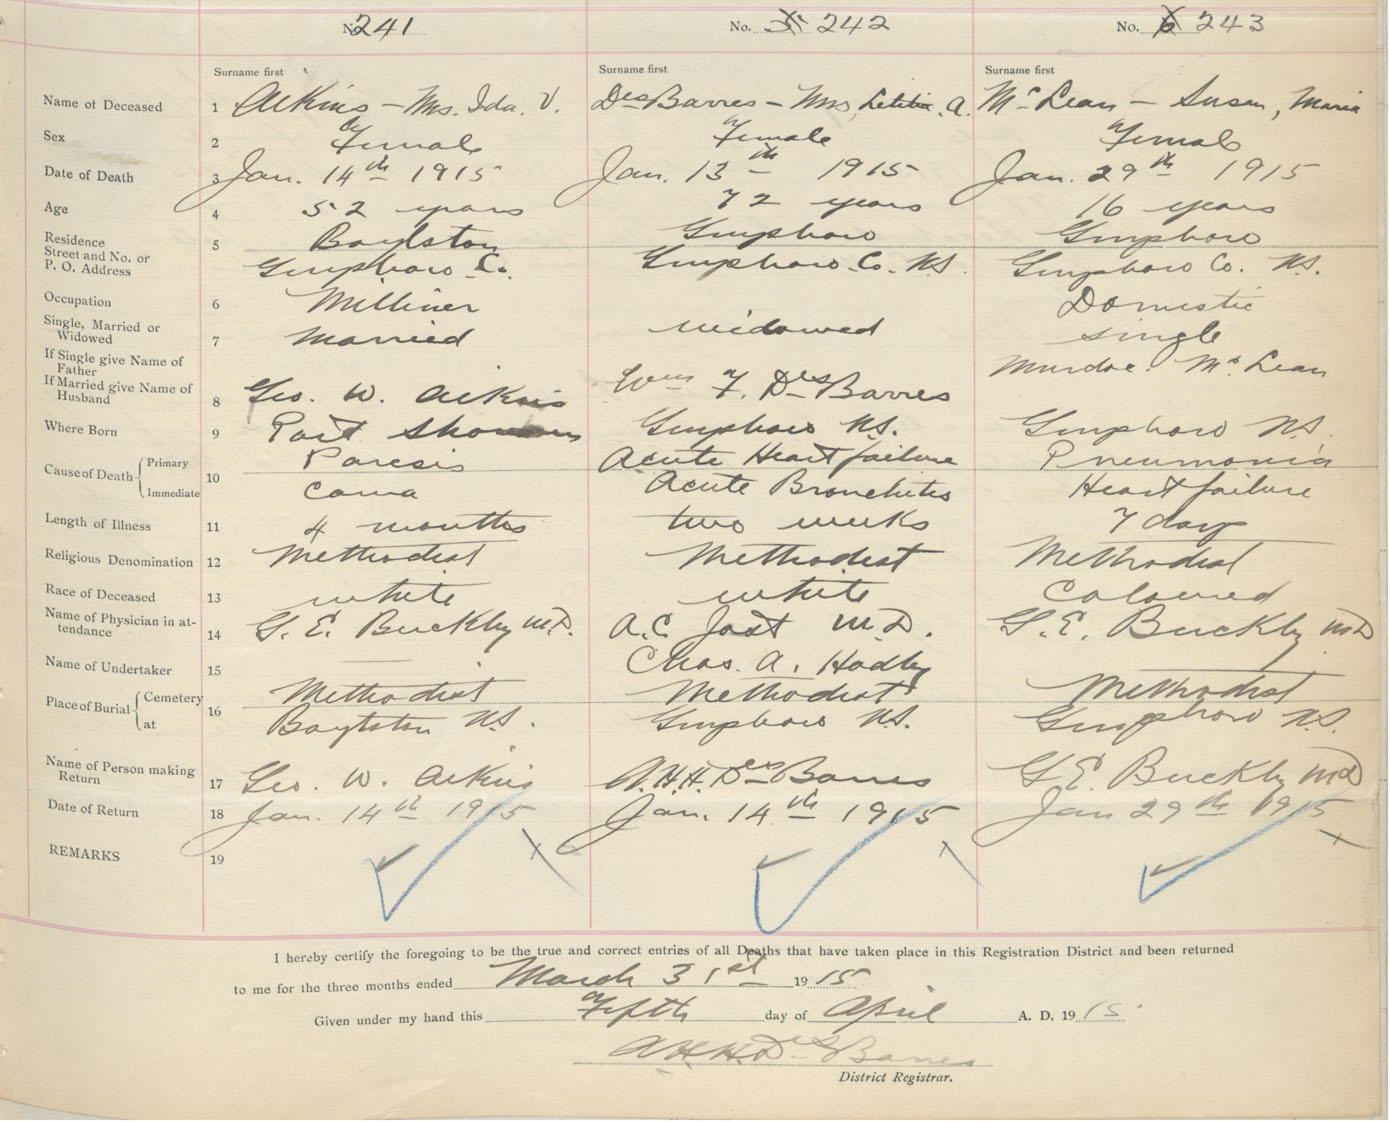 No. 241
No. 5 242
No. 6 243
Surname first
Surname first
Surname first
Name of Deceased 1 Aikins - Mrs. Ida. V. DesBarres - Mrs, Letitia. A. McLean - Susan, Maria
Sex 2 Female Female Female
Date of Death 3 Jan. 14th 1915 Jan. 13th 1915 Jan. 29th 1915
Age 4 52 years 72 years 16 years
Residence 5 Boylston Guysboro Guysboro
Street and No. or
P. O. Address Guysboro Co. Guysboro Co. N.S. Guysboro Co. N.S.
Occupation 6 Milliner Domestic
Single, Married or
Widowed 7 Married widowed single
If Single give Name of
Father Murdoc McLean
If Married give Name of
Husband 8 Geo. W. Aikins Wm F. DesBarres
Where Born 9 Port Guysboro N.S. Guysboro N.S.
Cause of Death Primary 10 Paresis Acute Heart failure Pneumonia
Immediate Coma Acute Bronchitis Heart failure
Length of Illness 11 4 months two weeks 7 days
Religious Denomination 12 Methodist Methodist Methodist
Race of Deceased 13 white white Coloured
Name of Physician in at-
tendance 14 G. E. Buckley M.D. A.C. Jost M.D. G. E. Buckley MD
Name of Undertaker 15 — Chas. A. Hadley
Place of Burial Cemetery 16 Methodist Methodist Methodist
at Boylston N.S. Guysboro N.S. Guysboro N.S.
Name of Person making
Return 17 Geo. W. Aikins A.H.H. DesBarres G.E. Buckley MD
Date of Return 18 Jan. 14th 1915 Jan. 14th 1915 Jan 29th 1915
REMARKS 19
I hereby certify the foregoing to be the true and correct entries of all Deaths that have taken place in this Registration District and been returned
to me for the three months ended March 31st 1915
Given under my hand this Fifth day of April A. D. 1915
A.H.H. DesBarres
District Registrar.